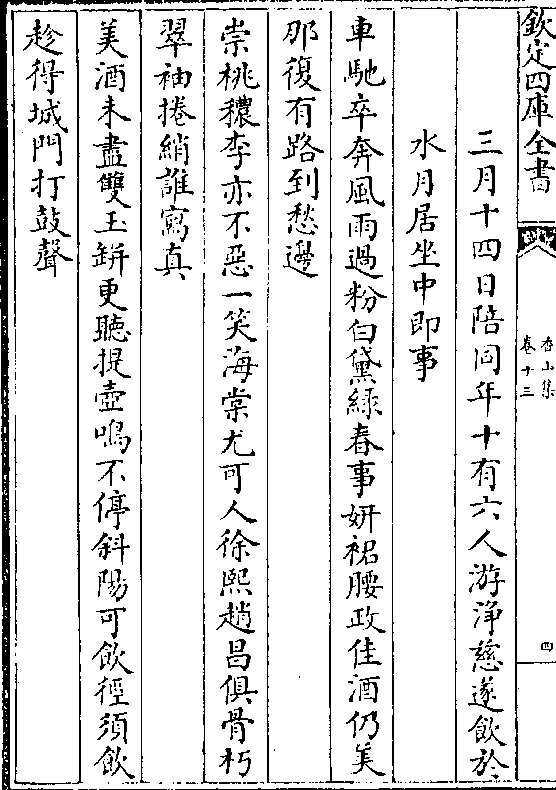 欽定四庫全書
香山集
卷十三
四
三月十四日陪同年十有六人游淨慈遂飲於
水月居坐中即事
車馳卒奔風雨過粉白黛綠春事妍裙腰政佳酒仍美
那復有路到愁邊
崇桃穠李亦不惡一笑海棠尤可人徐熙趙昌俱骨朽
翠袖捲綃誰寫真
美酒未盡雙玉缾更聽提壺鳴不停斜陽可飲徑須飲
趁得城門打鼓聲